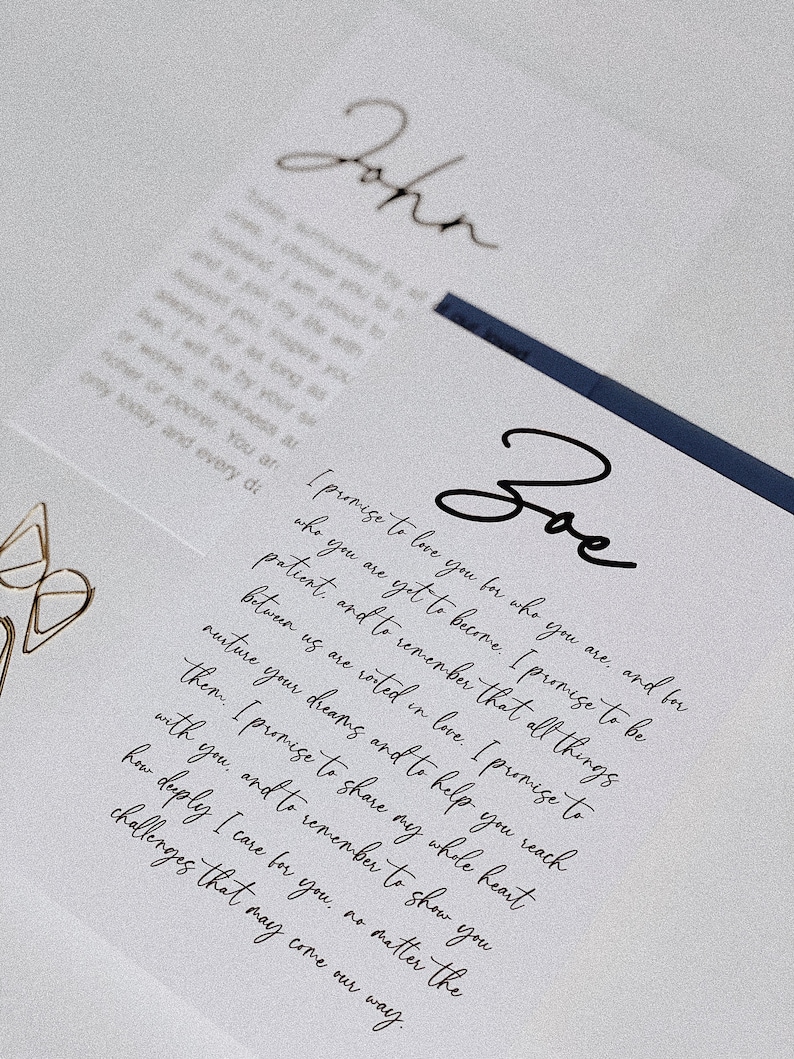 John
Today, surrounded by all of our loved
ones, I choose you to b
husband. I am proud to
and to join my life with
support you, inspire you
always. For as long as
live, I will be by your si
or worse, in sickness ar
richer or poorer. You are
only today and every da
Zoe
I promise to love you for who you are, and for
who you are yet to become. I promise to be
patient, and to remember that all things
between us are rooted in love. I promise to
nurture your dreams and to help you reach
them. I promise to share my whole heart
with you, and to remember to show you
how deeply I care for you, no matter the
challenges that may come our way.